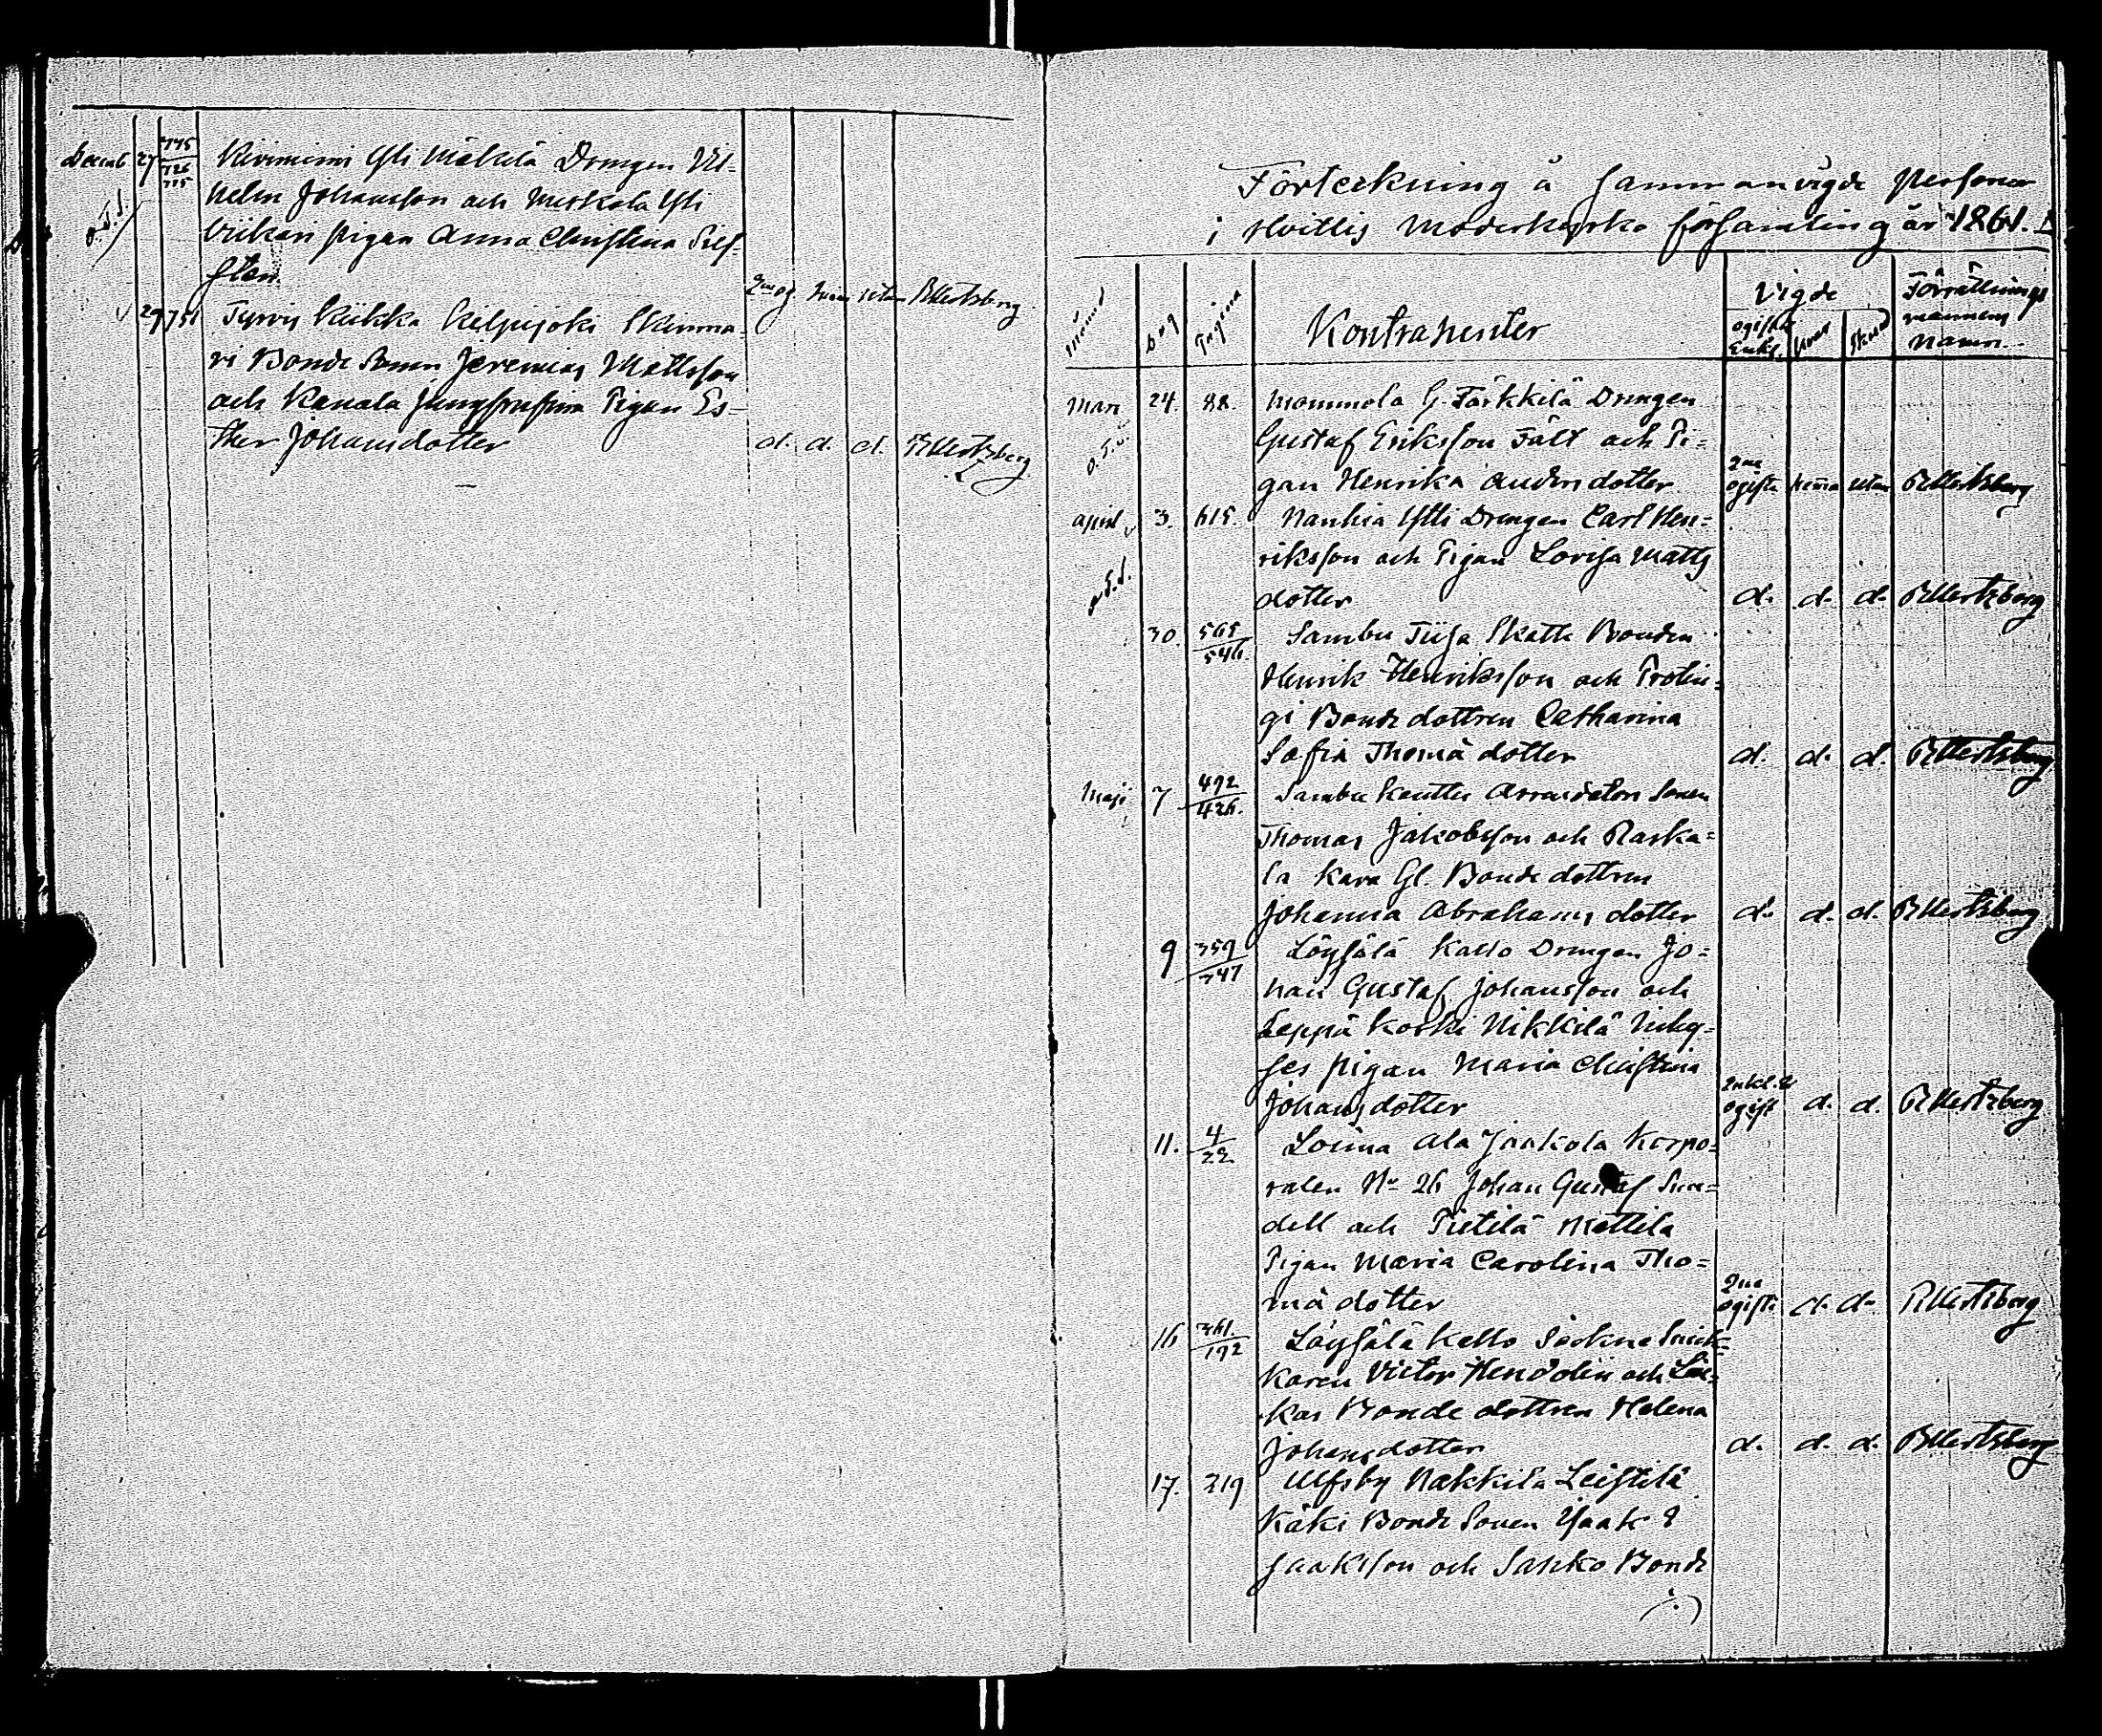 Decemb 27 775/726/775 Kiviniemi Yli Mäkilä Drengen Vil=
helm Johansson och Meskala Yli
pigan Anna Christina Sief-
sten. 2ne og. hem utan Mertsberg
29 751 Tyrvis Kiikka Kilpijoki Skinna-
ri Bonde Sonen Jeremias Mattsson
och Kauala Jungfrufina Pigan Es-
ther Johansdotter d. d. d. Mertsberg
Förteckning å Sammanvigde Personer
i Hvittis Moderkyrko församling år 1861.
Månad Dag Pagina Kontrahenter Vigde Förrättnings
ogifta Enkl. mannens
namn.
Mars 24. 88. Mommola G. Färkkilä Drengen
Gustaf Eriksson Fält och Pi=
gan Henrika Anders dotter 2ne ogifta hema utan Mertsberg
April 3. 615. Nanhia Ytti Drengen Carl Hen=
riksson och Pigan Lovisa Matts
dotter d. d. d. Mertsberg
30. 565/546. Sambu Tiisa Skatte Bonden
Henrik Henriksson och
gi Bonde dottren Catharina
Sofia Thomä dotter d. d. d. Mertsberg
Maji 7 492/426. Sambu Kouttu Arrendators Sonen
Thomas Jakobsson och Raska=
la Kara Gl. Bonde dottren
Johanna Abrahams dotter d. d. d. Mertsberg
9 359/347 Löysälä Kallo Drengen Jo=
han Gustaf Johansson och
Leppä koski Nikkilä Inhy=
ses pigan Maria Christina
Johans dotter Enkl. & ogift d. d. Mertsberg
11. 4/22 Loima Ala Jaakola Korpo=
ralen No 26 Johan Gustaf Sun=
dell och Pietilä Mattila
Pigan Maria Carolina Tho=
mä dotter 2ne ogifta d. d. Mertsberg
16 361./192 Löysälä Kallo Sockne Snick=
karen Victor Hendolin och
kas Bonde dottren Helena
Johansdotter d. d. d. Mertsberg
17. 219 Ulfsby Nakkila Leistilä
Käki Bonde Sonen Isaak
Isaaksson och Sahko Bonde